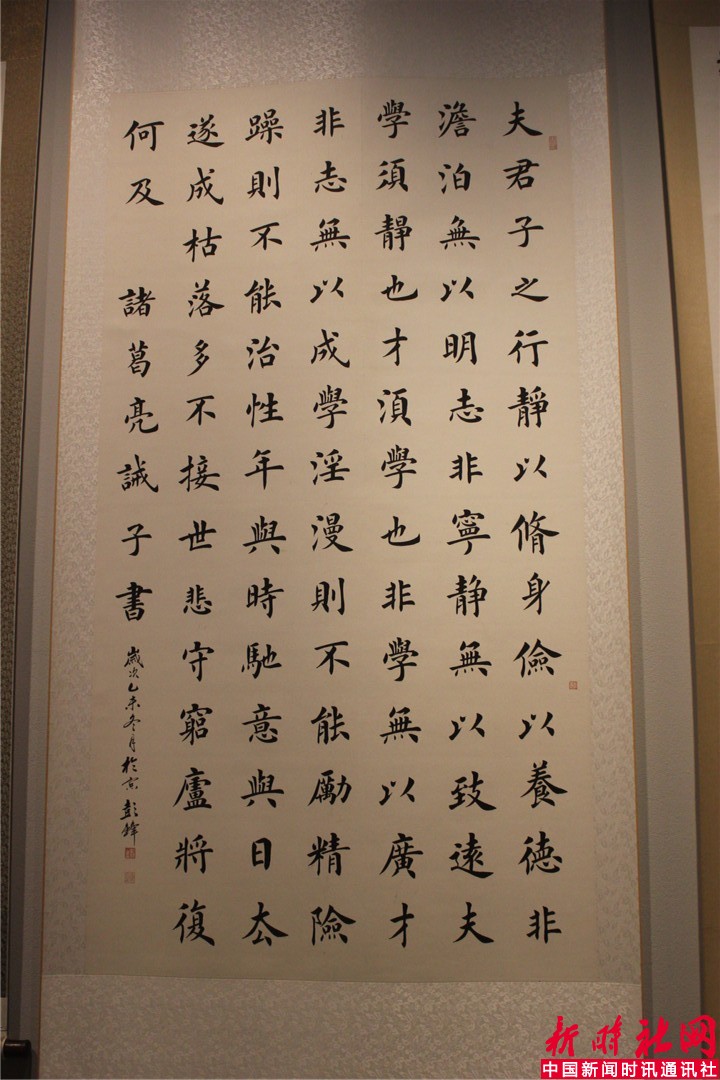 夫君子之行靜以脩身儉以養德非
澹泊無以明志非寧静無以致遠夫
學須靜也才須學也非學無以廣才
非志無以成學淫漫則不能勵精險
躁則不能治性年與時馳意與日去
遂成枯落多不接世悲守窮廬將復
何及 諸葛亮誡子書 歲次乙未冬月於京 彭鋒
新时社网
中国新闻时讯通讯社